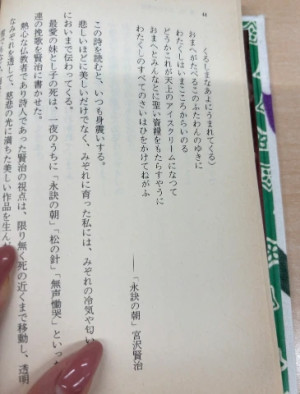 くるしまなあよにうまれてくる)
おまへがたべるこのふたわんのゆきに
わたくしはいまこころからいのる
どうかこれが天上のアイスクリームになつて
おまへとみんなとに聖い資糧をもたらすやうに
わたくしのすべてのさいはひをかけてねがふ
――「永訣の朝」宮沢賢治
この詩を読むと、いつも身震いする。
悲しいほどに美しいだけでなく、みぞれに育った私には、みぞれの冷気や匂い
においまで伝わってくる。
最愛の妹とし子の死は、一夜のうちに「永訣の朝」「松の針」「無声慟哭」といっ
連の挽歌を賢治に書かせた。
熱心な仏教者であり詩人であった賢治の視点は、限り無く死の近くまで移動し、透明
なみぞれを透して、慈悲の光に満ちた美しい作品を生ん